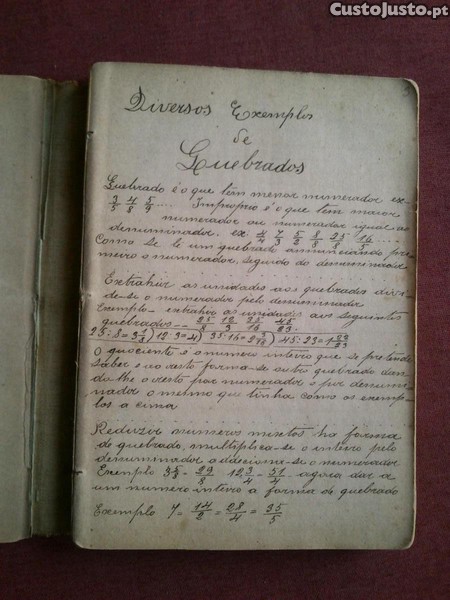 CustoJusto.pt
Diversos Exemplos
de
Quebrados
Quebrado é o que tem menor numerador ex-
3/5 4/8 5/9 .... Improprio é o que tem maior
numerador ou numerador igual ao
denuminador. ex: 4/4 7/3 5/2 8/8 25/8 16/5 ....
Como se lê um quebrado annunciando pri-
meiro o numerador, seguido do denuminador
Extrahir as unidades aos quebrados divi-
de-se o numerador pelo denuminador
Exemplo - extrahir as unidades aos seguintes
quebrados -- 25/8 12/3 35/16 45/23
25:8=3 1/8) 12:3=4) 35:16=2 3/16) 45:23=1 22/23
O quociente é o numero inteiro que se pretende
saber e ao resto forma-se outro quebrado dan
do lhe o resto por numerador e por denumi-
nador o mesmo que tinha como os exemp-
los a cima
Reduzir numeros mixtos ha forma
de quebrado, multiplica-se o inteiro pelo
denuminador e addiciona-se o numerador
Exemplo 3 5/8 = 29/8 12 3/4 = 51/4 agora dar a
um numero inteiro a forma de quebrado
Exemplo 7 = 14/2 = 28/4 = 35/5